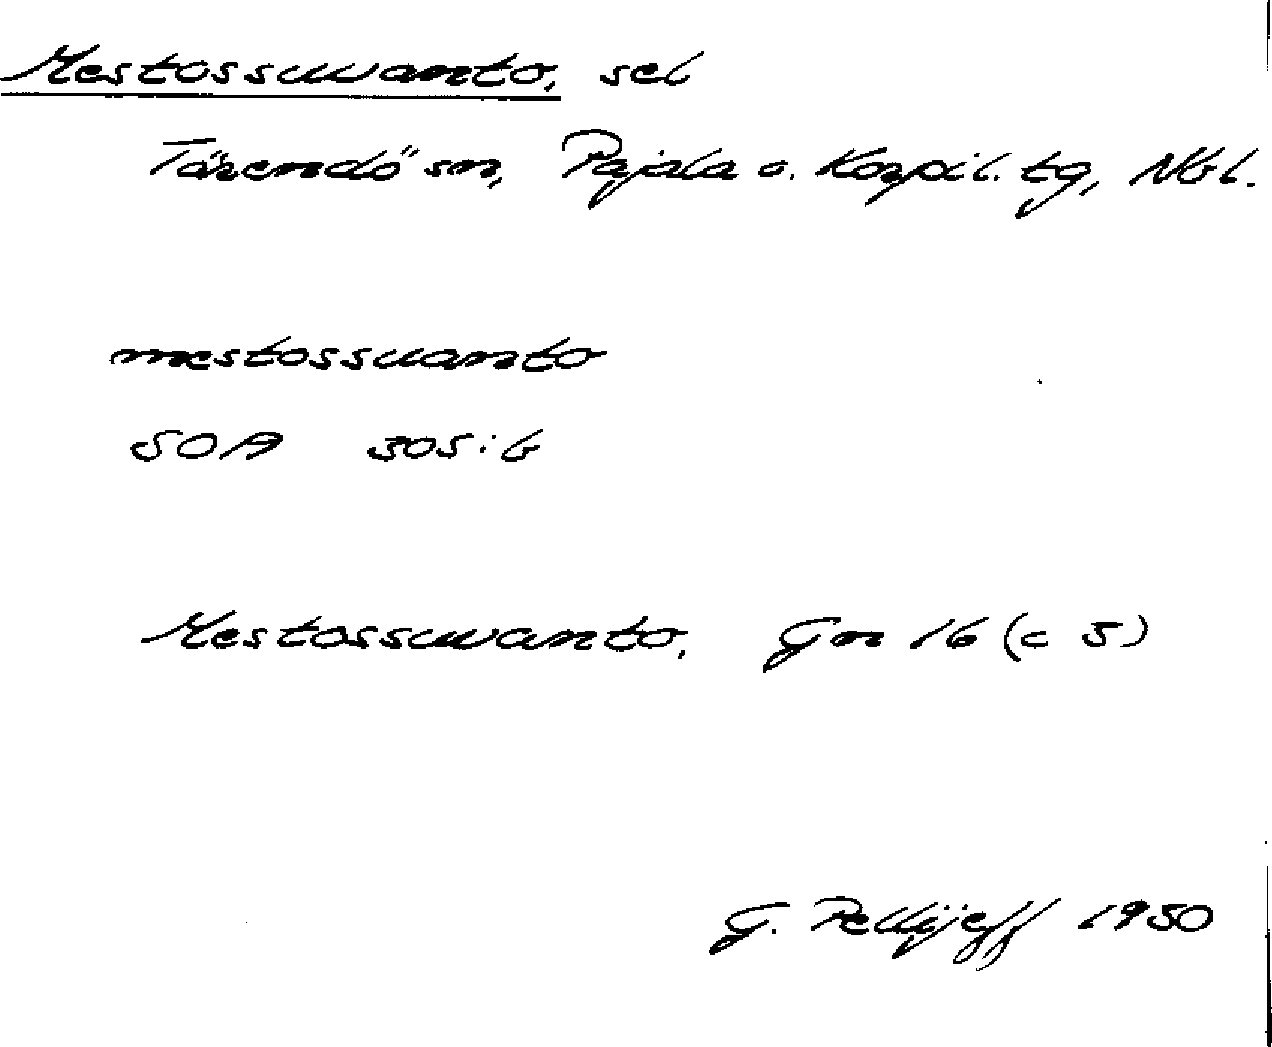 Mestossuvanto, sel
Tärendö sn, Pajala o. Korpil. tg, Nbl.
mestossuanto
SOA 305:6
Mestossuvanto, Gn 16 (c 5)
G. Pellijeff 1950